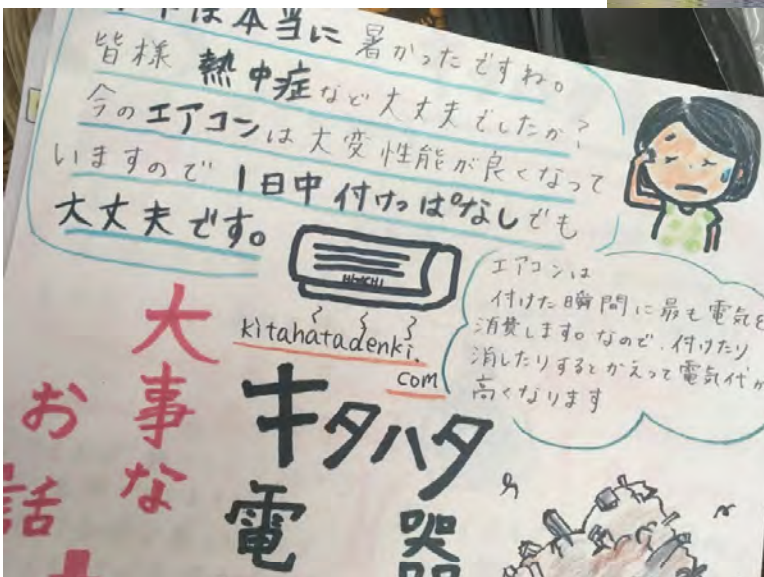 は本当に 暑かったですね。
皆様 熱中症など大丈夫でしたか?
今のエアコンは大変性能が良くなって
いますので 1日中付けっぱなしでも
大丈夫です。
HITACHI
kitahatadenki.
com
エアコンは
付けた瞬間に最も電気を
消費します。なので、付けたり
消したりするとかえって電気代が
高くなります
大事な
お話
キタハタ
電器